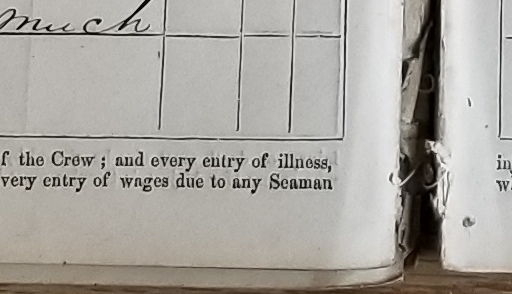 much
f the Crew ; and every entry of illness,
very entry of wages due to any Seaman
in
w